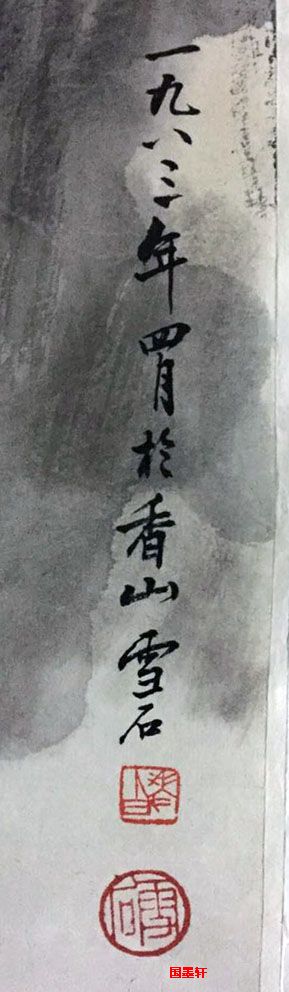 一九八三年四月於香山雪石
雪石
国墨轩